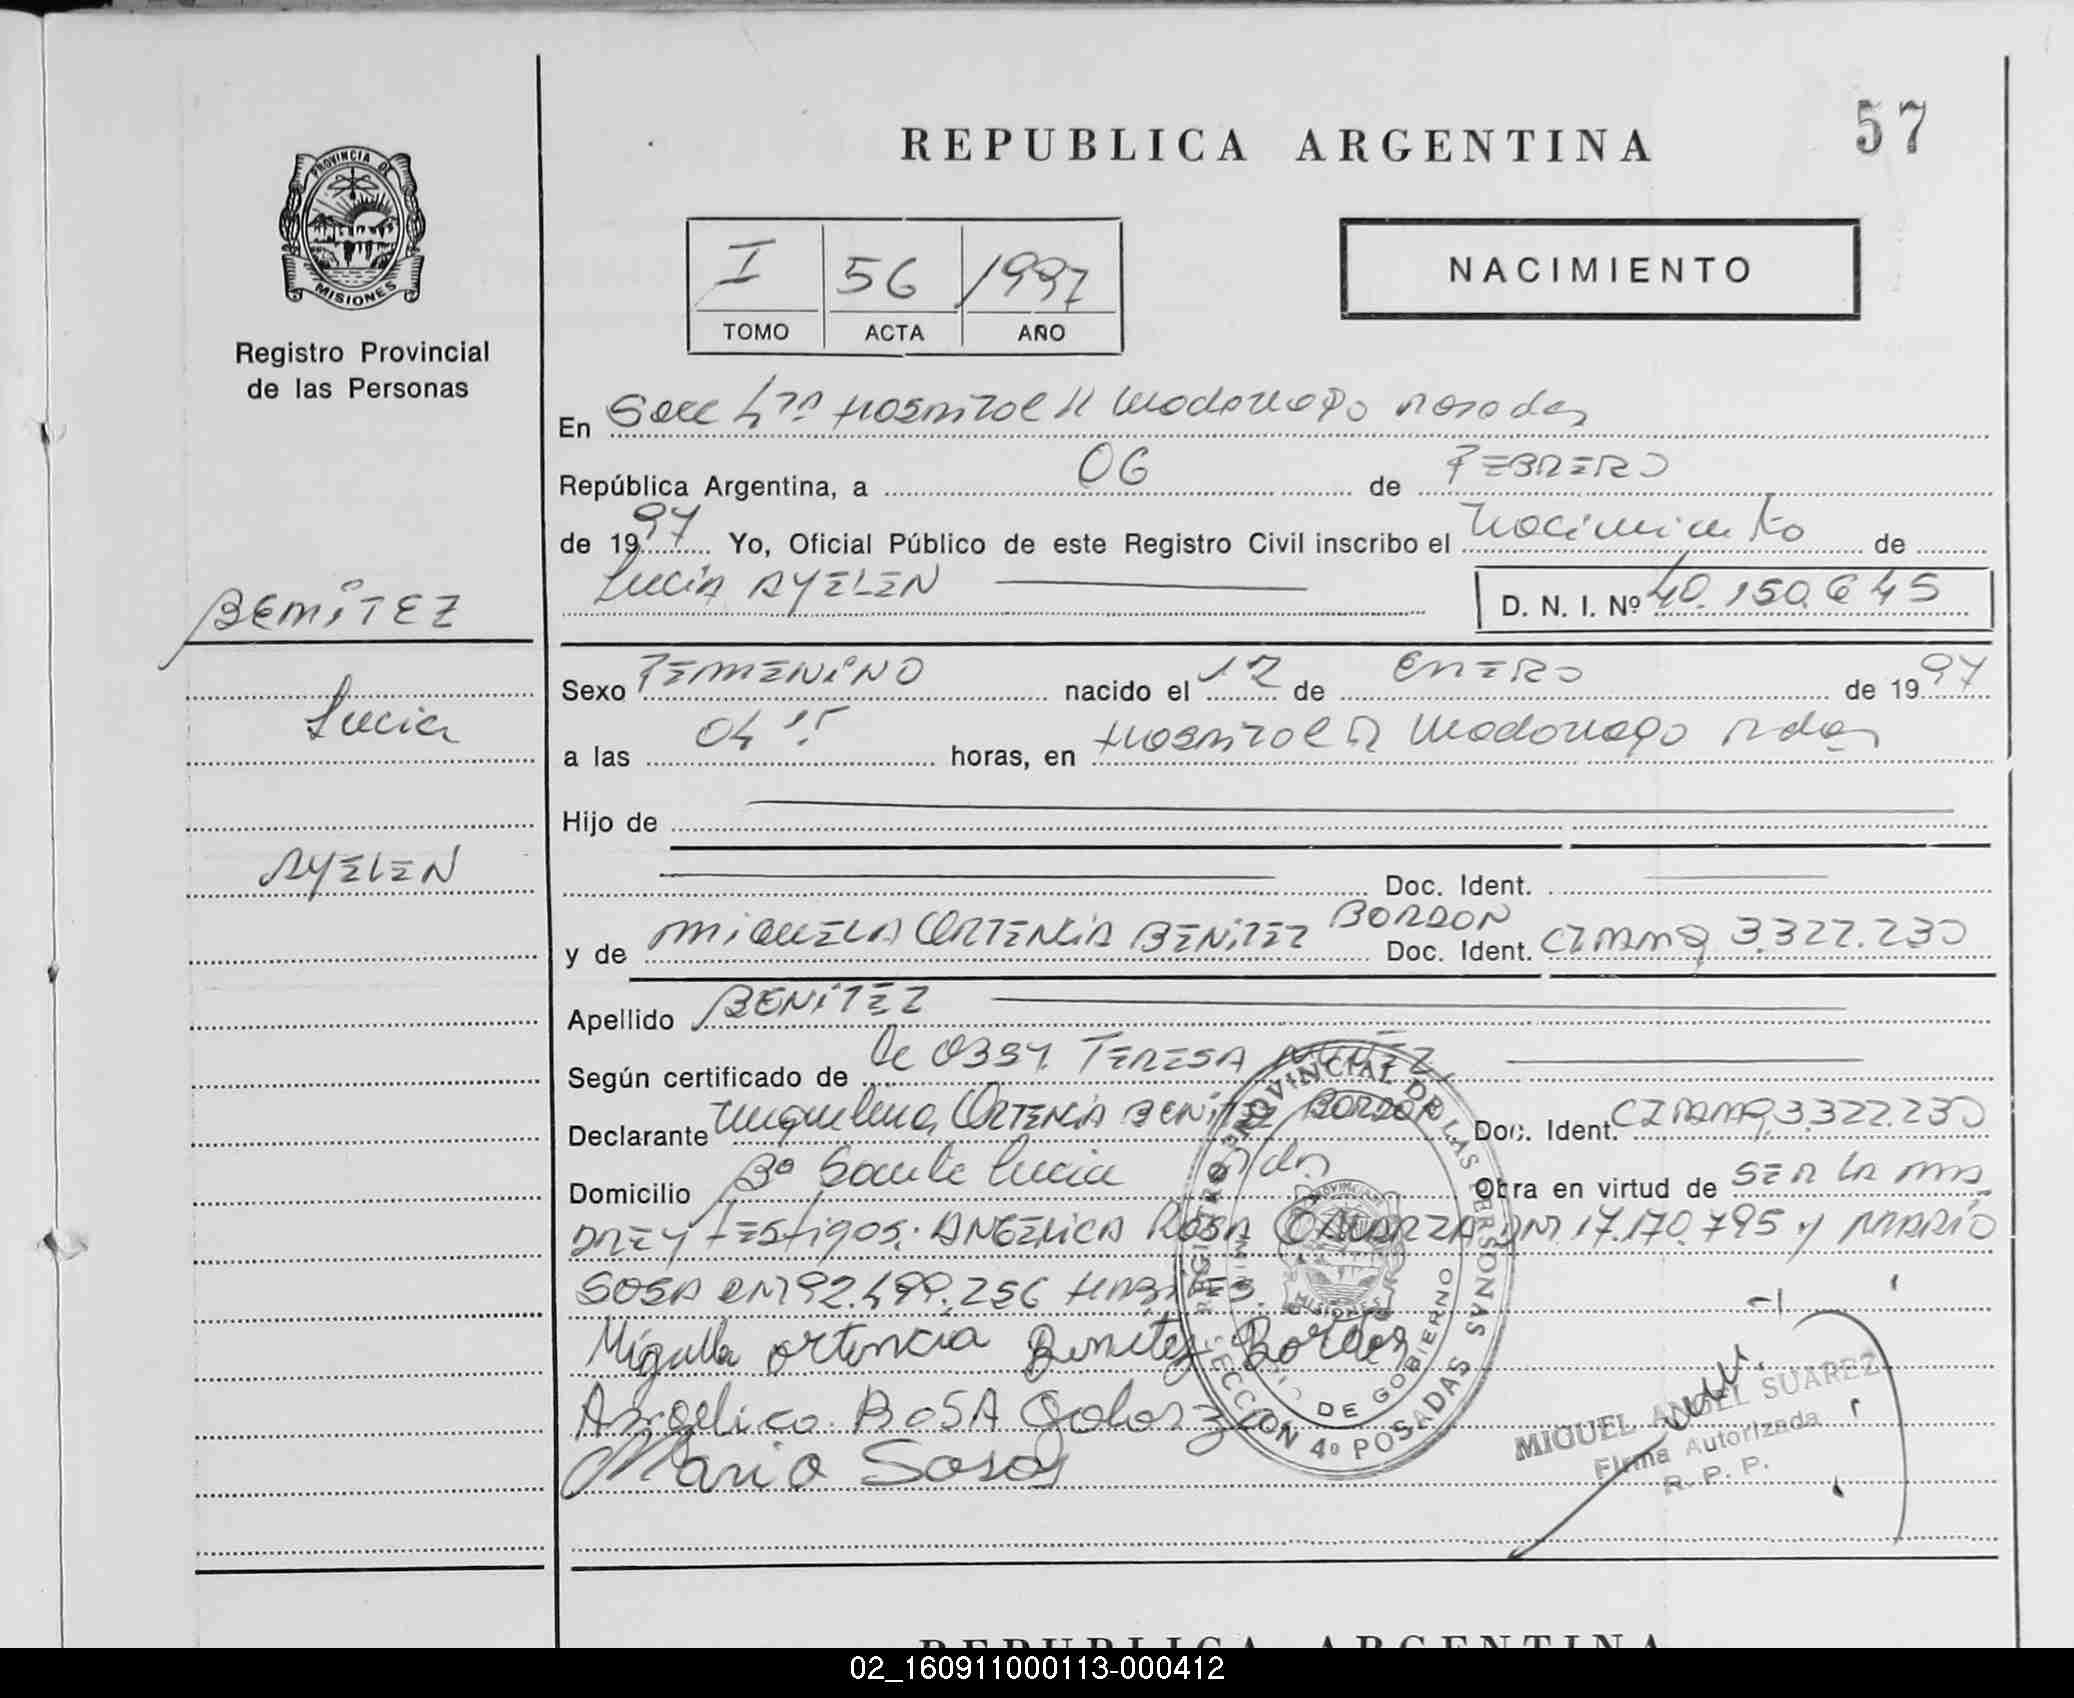 57
REPUBLICA ARGENTINA
PROVINCIA DE MISIONES
Registro Provincial
de las Personas
I 56 1997
TOMO ACTA AÑO
NACIMIENTO
En Secc 4ta Hospital R Madariaga Posadas
República Argentina, a 06 de FEBRERO
de 1997 Yo, Oficial Público de este Registro Civil inscribo el Nacimiento de
Lucia AYELEN D. N. I. Nº 40.150.645
BENITEZ
Lucia
AYELEN
Sexo FEMENINO nacido el 12 de ENERO de 1997
a las 04 15 horas, en Hospital R Madariaga Pdas
Hijo de
Doc. Ident.
y de MIGUELA ORTENCIA BENITEZ BORDON Doc. Ident. 3.322.230
Apellido BENITEZ
Según certificado de TERESA
Declarante ORTENCIA BENITEZ BORDON Doc. Ident. 3.322.230
Domicilio Bº Santa Lucia Pdas Obra en virtud de SER LA MA
DRE Y TESTIGOS: ANGELICA ROSA DNI 17.170.795 y MARIO
SOSA DNI 92.499.256 HABILES.
Miguela ortencia Benitez Bordon
Angelica ROSA
Mario Sosa
REGISTRO PROVINCIAL DE LAS PERSONAS
DE GOBIERNO
SECCION 4º POSADAS
MISIONES
MIGUEL ANGEL SUAREZ
Firma Autorizada
R. P. P.
REPUBLICA ARGENTINA
02_160911000113-000412